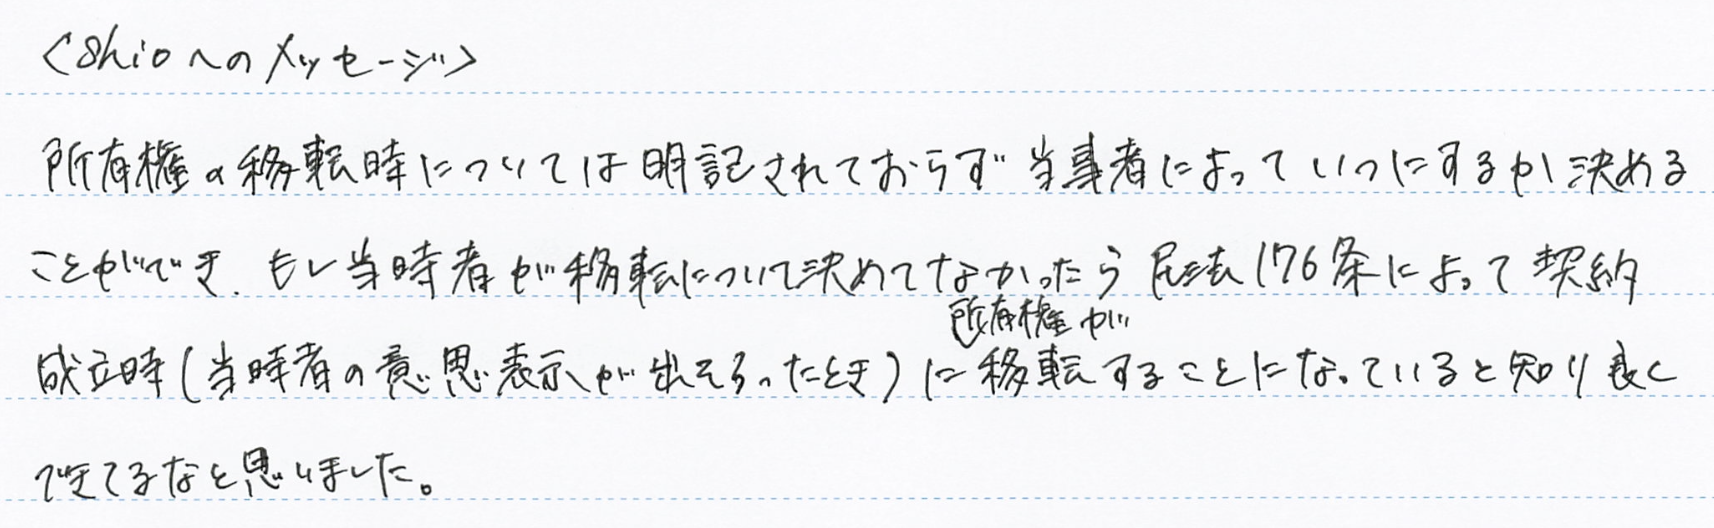 <Shioへのメッセージ>
所有権の移転時については明記されておらず当事者によっていつにするか決める
ことができ、もし当時者が移転について決めてなかったら民法176条によって契約
所有権が
成立時(当時者の意思表示が出そろったとき)に移転することになっていると知り良く
できてるなと思いました。